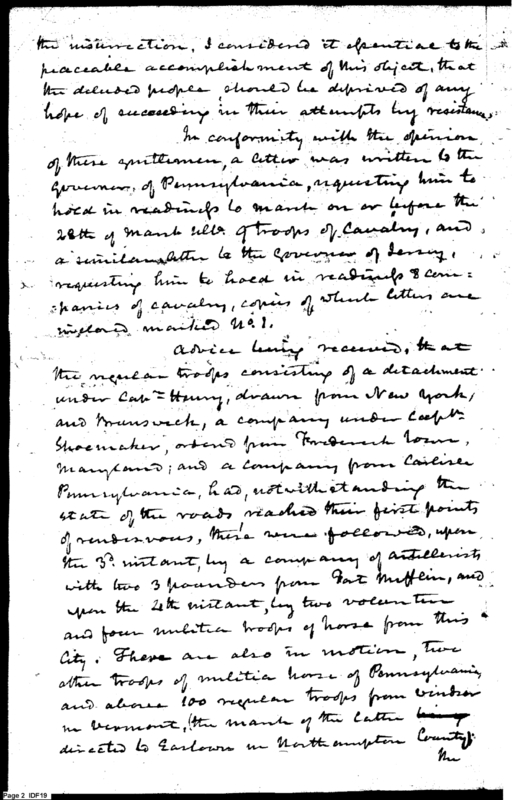 the insurrection. I considered it essential to the
peaceable accomplishment of this object, that
the deluded people, should be deprived of any
hope of succeeding in their attempts by resistance.
In conformity with the opinion
of these gentlemen, a letter was written to the
Governor, of Pennsylvania, requesting him to
hold in readiness to march on or before the
28th of March ulto. 9 troops of Cavalry, and
a similar letter to the Governor of Jersey,
requesting him to hold in readiness 8 com-
panies of cavalry, copies of which letters are
inclosed marked No. 1.
Advice being received, that
the regular troops consisting of a detachment
under Capn Henry, drawn from New York,
and Brunswick, a company under Captn
Shoemaker, ordered from Frederick Town,
Maryland; and a company from Carlisle
Pennsylvania, had, notwithstanding the
state of the roads reached their first points
of rendezvous, these were followed, upon
the 3d instant, by a company of artillerists
with two 3 pounders from Fort Mifflin, and
upon the 4th instant, by two volunteer
and four militia troops of horse from this
City. There are also in motion, two
other troops of militia horse of Pennsylvania,
and above 100 regular troops from Windsor
in Vermont, the march of the latter being
directed to Eastown in Northampton County.
The
Page 2 IDF19